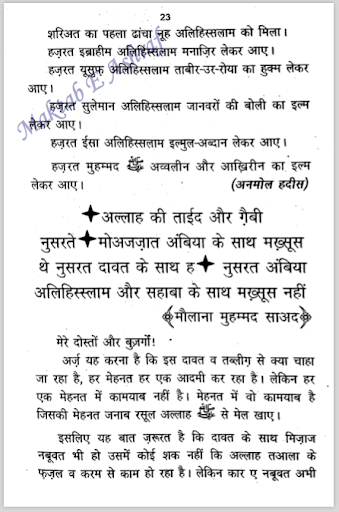 23
शरिअत का पहला ढांचा नूह अलिहिस्सलाम को मिला।
हज़रत इब्राहीम अलिहिस्सलाम मनाज़िर लेकर आए।
हज़रत यूसुफ़ अलिहिस्सलाम ताबीर-उर-रोया का हुक्म लेकर
आए।
हज़रत सुलेमान अलिहिस्सलाम जानवरों की बोली का इल्म
लेकर आए।
हज़रत ईसा अलिहिस्सलाम इल्मुल-अब्दान लेकर आए।
हज़रत मुहम्मद ﷺ अव्वलीन और आख़िरीन का इल्म
लेकर आए।
(अनमोल हदीस)
Maktab E Ashraf
✦अल्लाह की ताईद और ग़ैबी
नुसरते✦मोअजज़ात अंबिया के साथ मख़्सूस
थे नुसरत दावत के साथ ह✦ नुसरत अंबिया
अलिहिस्स्लाम और सहाबा के साथ मख़्सूस नहीं
मौलाना मुहम्मद साअद
मेरे दोस्तों और बुज़र्गो!
अर्ज़ यह करना है कि इस दावत व तब्लीग़ से क्या चाहा
जा रहा है, हर मेहनत हर एक आदमी कर रहा है। लेकिन हर
एक मेहनत में कामयाब नहीं है। मेहनत में वो कामयाब है
जिसकी मेहनत जनाब रसूल अल्लाह ﷺ से मेल खाए।
इसलिए यह बात ज़रूरत है कि दावत के साथ मिज़ाज
नबूवत भी हो उसमें कोई शक नहीं कि अल्लाह तआला के
फ़ज़ल व करम से काम हो रहा है। लेकिन कार ए नबूवत अभी